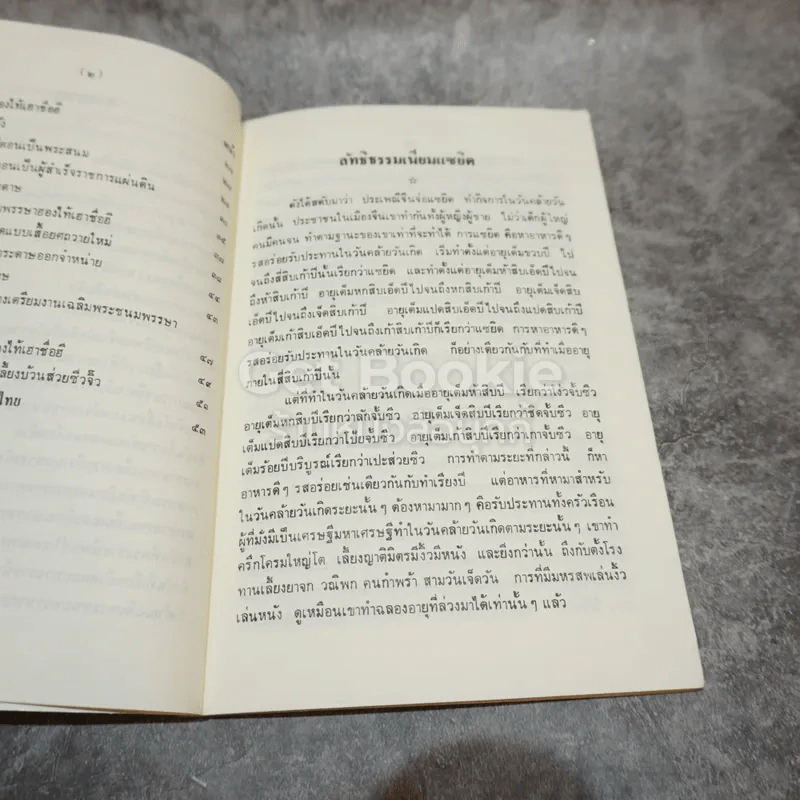 (๒)
องไท้เฮาชื่ออี
หน้า
ตอนเป็นพระสนม
อนเป็นผู้สำเร็จราชการแผ่นดิน
พรรษาฮองไท้เฮาชื่ออี
ดแบบเสื้อยศถวายใหม่
กระดาษออกจำหน่าย
๓๘
๔๔
งเตรียมงานเฉลิมพระชนมพรรษา
๔๓
องไท้เฮาชื่ออี
๔๗
ลี้ยงบ้วนส่วยซิ่วจิ๊ว
๔๙
ไทย
๕๑
๕๓
ลัทธิธรรมเนียมแซยิด
ดังได้สดับมาว่า ประเพณีจีนจ่อแซยิด ทำกิจการในวันคล้ายวัน
เกิดนั้น ประชาชนในเมืองจีนเขาทำกันทั้งผู้หญิงผู้ชาย ไม่ว่าเด็กผู้ใหญ่
คนมีคนจน ทำตามฐานะของเขาเท่าที่จะทำได้ การแซยิด คือหาอาหารดีๆ
รสอร่อยรับประทานในวันคล้ายวันเกิด เริ่มทำตั้งแต่อายุเต็มขวบปี ไป
จนถึงสี่สิบเก้าปีนั้นเรียกว่าแซยิด และทำตั้งแต่อายุเต็มห้าสิบเอ็ดปีไปจน
ถึงห้าสิบเก้าปี อายุเต็มหกสิบเอ็ดปีไปจนถึงหกสิบเก้าปี อายุเต็มเจ็ดสิบ
เอ็ดปีไปจนถึงเจ็ดสิบเก้าปี อายุเต็มแปดสิบเอ็ดปีไปจนถึงแปดสิบเก้าปี
อายุเต็มเก้าสิบเอ็ดปีไปจนถึงเก้าสิบเก้าปีก็เรียกว่าแซยิด การหาอาหารดีๆ
รสอร่อยรับประทานในวันคล้ายวันเกิด ก็อย่างเดียวกันกับที่ทำเมื่ออายุ
ภายในสี่สิบเก้าปีนั้น
แต่ที่ทำในวันคล้ายวันเกิดเมื่ออายุเต็มห้าสิบปี เรียกว่าโหงวจั้บซิ่ว
อายุเต็มหกสิบปีเรียกว่าลักจั้บซิ่ว อายุเต็มเจ็ดสิบปีเรียกว่าชิดจั้บซิ่ว อายุ
เต็มแปดสิบปีเรียกว่าโป๊ยจั้บซิ่ว อายุเต็มเก้าสิบปีเรียกว่าเกาจั้บซิ่ว อายุ
เต็มร้อยปีบริบูรณ์เรียกว่าเปะส่วยซิ่ว การทำตามระยะที่กล่าวนี้ ก็หา
อาหารดีๆ รสอร่อยเช่นเดียวกันกับทำเรียงปี แต่อาหารที่หามาสำหรับ
ในวันคล้ายวันเกิดระยะนั้นๆ ต้องหามามากๆ คือรับประทานทั้งครัวเรือน
ผู้ที่มั่งมีเป็นเศรษฐีมหาเศรษฐีทำในวันคล้ายวันเกิดตามระยะนั้นๆ เขาทำ
ครึกโครมใหญ่โต เลี้ยงญาติมิตรมีงิ้วมีหนัง และยิ่งกว่านั้น ถึงกับตั้งโรง
ทานเลี้ยงยาจก วณิพก คนกำพร้า สามวันเจ็ดวัน การที่มีมหรสพเล่นงิ้ว
เล่นหนัง ดูเหมือนเขาทำฉลองอายุที่ล่วงมาได้เท่านั้นๆ แล้ว
Got Bookie